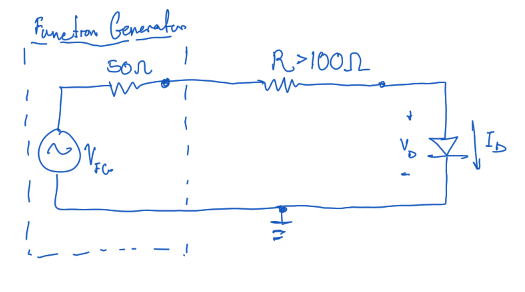 Function Generator
50Ω
R>100Ω
V_FG
+
V_D
-
I_D